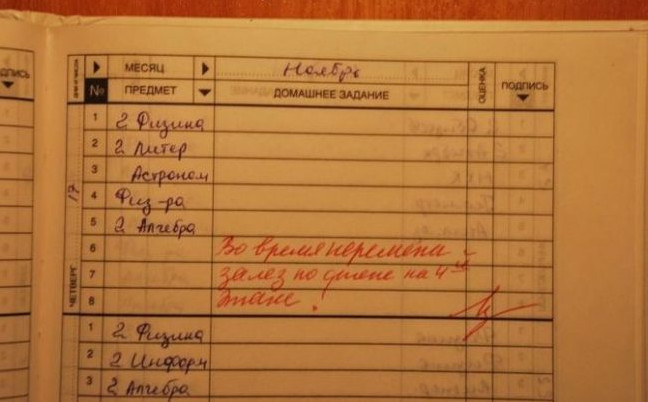 ДПИСЬ
МЕСЯЦ Ноябрь ОЦЕНКА ПОДПИСЬ
№ ПРЕДМЕТ ДОМАШНЕЕ ЗАДАНИЕ
1 2 Физика
2 2 Литер
3 Астроном
4 Физ-ра
5 2 Алгебра
17
ЧЕТВЕРГ
6 Во время перемены
7 залез по стене на 4-ый
8 этаж!
1 2 Физика
2 2 Информ
3 2 Алгебра